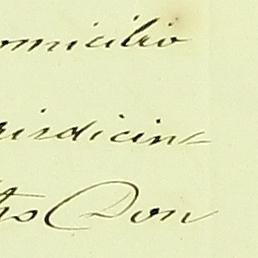 omicilio
risdicin-
tos Don